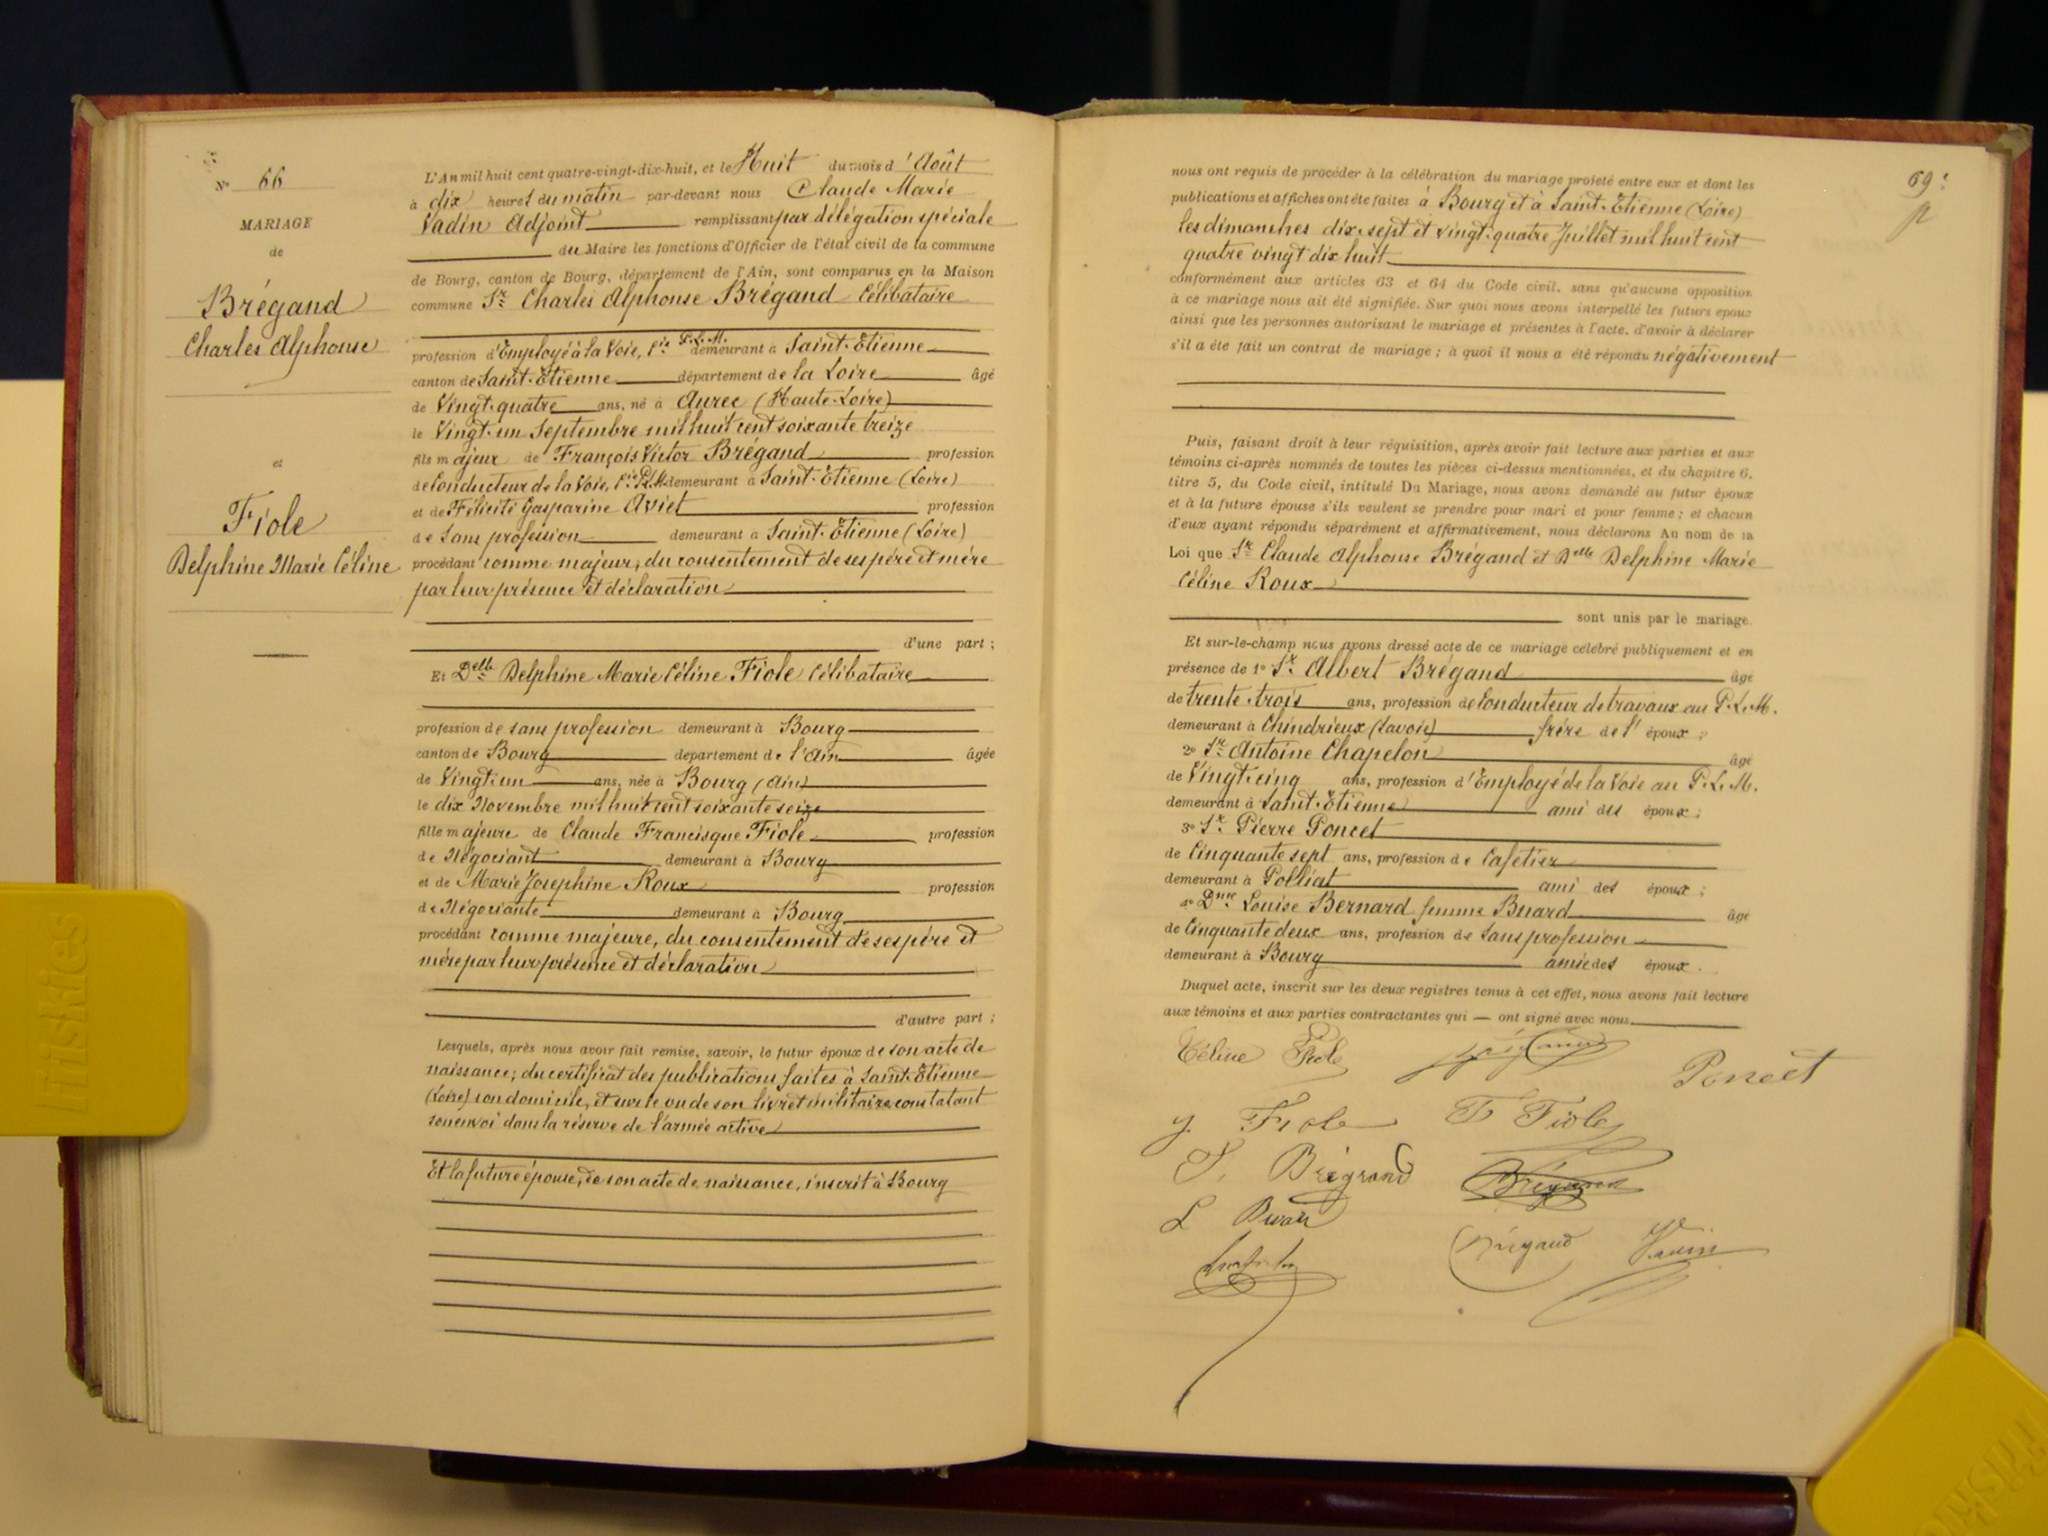 Nº 66
MARIAGE
de
Brégand
Charles Alphonse
et
Fiole
Delphine Marie Céline
L'An mil huit cent quatre-vingt-dix-huit, et le Huit du mois d'Août
à dix heures du matin par-devant nous Claude Marie
Vadin Adjoint remplissant par délégation spéciale
du Maire les fonctions d'Officier de l'état civil de la commune
de Bourg, canton de Bourg, département de l'Ain, sont comparus en la Maison
commune Sr Charles Alphonse Brégand Célibataire
profession d'Employé à la Voie, Cie P.L.M. demeurant à Saint-Etienne
canton de Saint-Etienne département de la Loire âgé
de Vingt-quatre ans, né à Aurec (Haute-Loire)
le Vingt-un Septembre mil huit cent soixante treize
fils majeur de François Victor Brégand profession
de Conducteur de la Voie, Cie P.L.M. demeurant à Saint-Etienne (Loire)
et de Félicité Gasparine Aviet profession
de Sans profession demeurant à Saint-Etienne (Loire)
procédant comme majeur, du consentement de ses père et mère
par leur présence et déclaration
d'une part ;
Et Delle Delphine Marie Céline Fiole Célibataire
profession de sans profession demeurant à Bourg
canton de Bourg département de l'Ain âgée
de Vingt-un ans, née à Bourg (Ain)
le dix Novembre mil huit cent soixante seize
fille majeure de Claude Francisque Fiole profession
de Négociant demeurant à Bourg
et de Marie Josephine Roux profession
de Négociante demeurant à Bourg
procédant comme majeure, du consentement de ses père et
mère par leur présence et déclaration
d'autre part ;
Lesquels, après nous avoir fait remise, savoir, le futur époux de son acte de
naissance; du certificat des publications faites à Saint-Etienne
(Loire) son domicile, et sur le vu de son livret militaire constatant
son envoi dans la réserve de l'armée active
Et la future épouse, de son acte de naissance, inscrit à Bourg
69
nous ont requis de procéder à la célébration du mariage projeté entre eux et dont les
publications et affiches ont été faites à Bourg et à Saint-Etienne (Loire)
les dimanches dix-sept et vingt-quatre Juillet mil huit cent
quatre vingt dix huit
conformément aux articles 63 et 64 du Code civil, sans qu'aucune opposition
à ce mariage nous ait été signifiée. Sur quoi nous avons interpellé les futurs époux
ainsi que les personnes autorisant le mariage et présentes à l'acte, d'avoir à déclarer
s'il a été fait un contrat de mariage ; à quoi il nous a été répondu négativement
Puis, faisant droit à leur réquisition, après avoir fait lecture aux parties et aux
témoins ci-après nommés de toutes les pièces ci-dessus mentionnées, et du chapitre 6,
titre 5, du Code civil, intitulé Du Mariage, nous avons demandé au futur époux
et à la future épouse s'ils veulent se prendre pour mari et pour femme ; et chacun
d'eux ayant répondu séparément et affirmativement, nous déclarons Au nom de la
Loi que Sr Claude Alphonse Brégand et Delle Delphine Marie
Céline Roux
sont unis par le mariage.
Et sur-le-champ nous avons dressé acte de ce mariage célébré publiquement et en
présence de 1º Sr Albert Brégand âgé
de trente-trois ans, profession de Conducteur de travaux au P.L.M.
demeurant à Chindrieux (Savoie) frère de l'époux ;
2º Sr Antoine Chapelon âgé
de Vingt-cinq ans, profession d'Employé de la Voie au P.L.M.
demeurant à Saint-Etienne ami des époux ;
3º Sr Pierre Poncet
de Cinquante sept ans, profession de Cafetier
demeurant à Polliat ami des époux ;
4º Dme Louise Bernard femme Buard âgé
de Cinquante deux ans, profession de Sans profession
demeurant à Bourg amie des époux.
Duquel acte, inscrit sur les deux registres tenus à cet effet, nous avons fait lecture
aux témoins et aux parties contractantes qui — ont signé avec nous
Céline Fiole
Poncet
J. Fiole F Fiole
Brégand Brégand
L Buard
Brégand Vadin